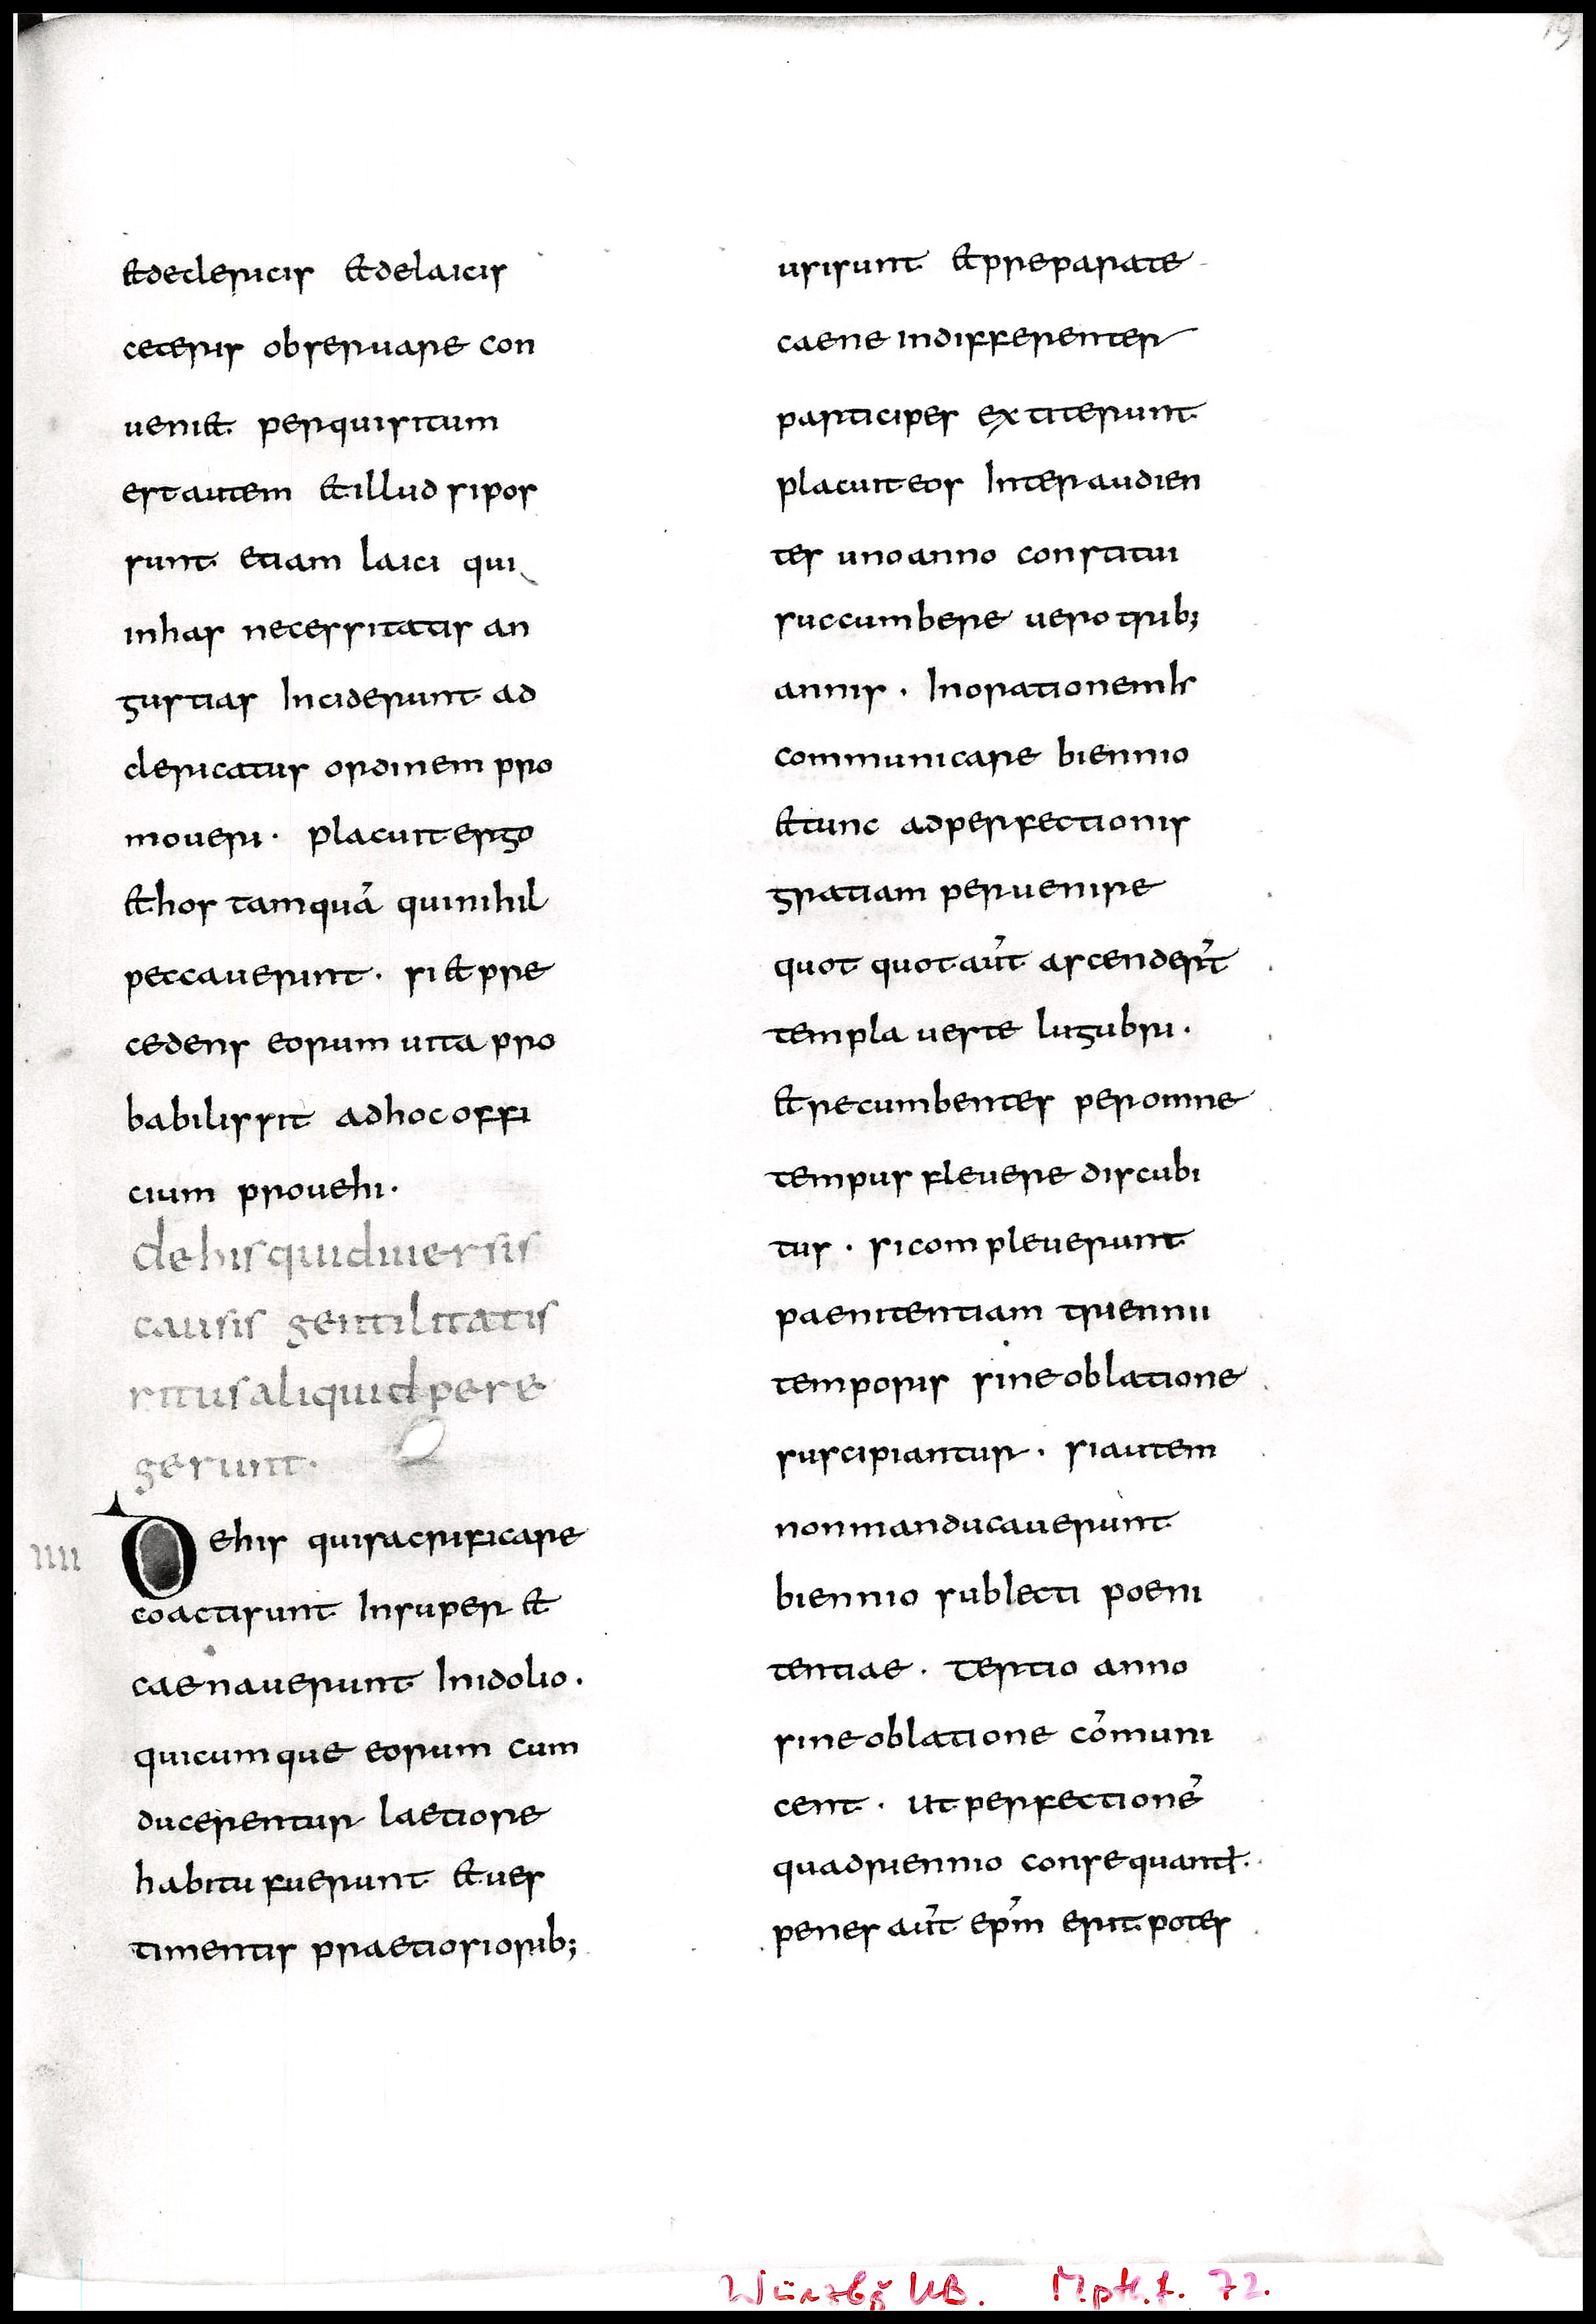 19
et declericis et delaicis
ceteris observare con
uenit perquisitum
est autem et illud sipos
sunt etiam laici qui
inhas necessitatis an
gustias Inciderunt ad
clericatus ordinem pro
moueri · placuit ergo
et hos tamquā quinihil
peccauerunt · si et pre
cedens eorum uita pro
babilis sit adhoc offi
cium prouehi ·
de his qui diuersis
causis gentilitatis
ritus aliquid pere
gerunt ·
IIII
Dehis qui sacrificare
coacti sunt Insuper et
caenauerunt Inidolio ·
quicumque eorum cum
ducerentur laetiore
habitu fuerunt et ues
timentis praetiosiorib;
usi sunt et preparate
caene indifferenter
participes extiterunt
placuit eos Inter audien
tes uno anno constitui
succumbere uero trib;
annis · Inoratione
communicare biennio
et tunc adperfectionis
gratiam peruenire
quot quot aūt ascender̄t
templa ueste lugubri ·
et recumbentes per omne
tempus fleuere discubi
tus · si compleuerunt
paenitentiam triennii
temporis sine oblatione
suscipiantur · si autem
non manducauerunt
biennio sublecti poeni
tentiae · Tertio anno
sine oblatione cōmuni
cent · ut perfectionē
quadriennio consequant̄ ·
penes aūt ep̄m erit potes
Würzbg UB. M.p.th.f. 72.